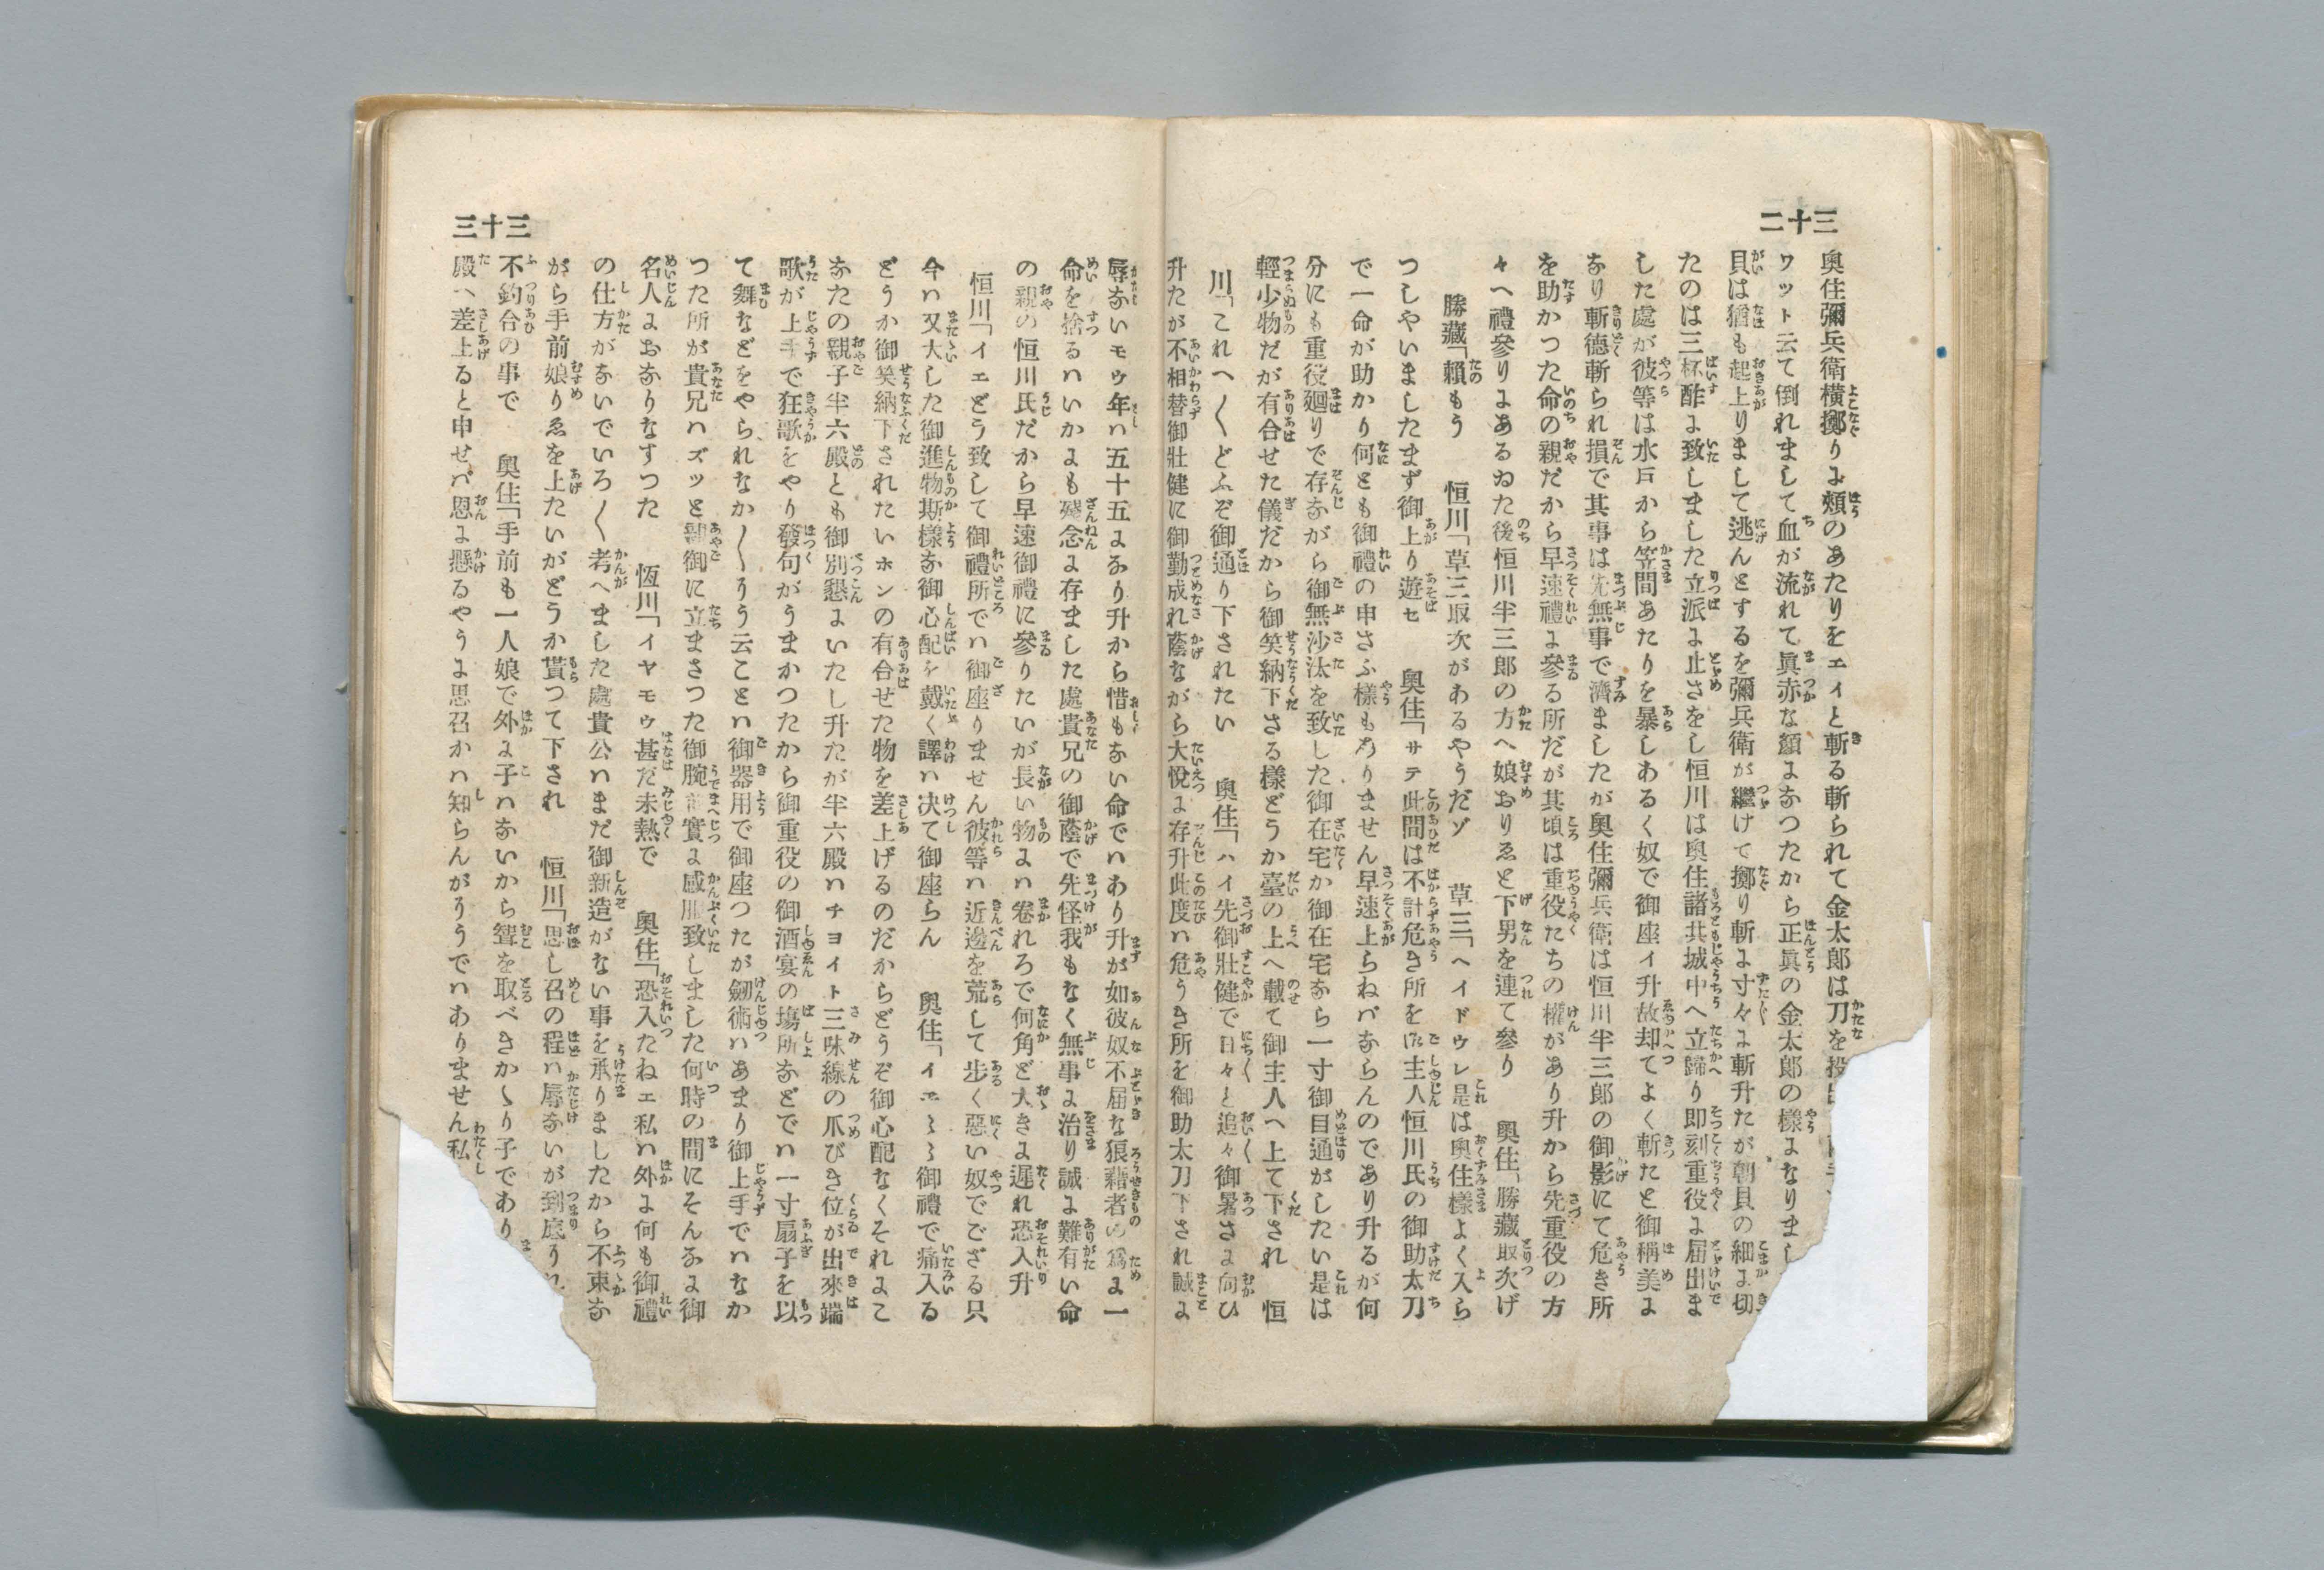 三十二
奥住彌兵衛横擲りよ頬のあたりをエイと斬る斬られて金太郎は刀を投
ワット云て倒れまして血が流れて眞赤な顏よなつたから正眞の金太郎の樣よなりまし
貝は猶も起上りまして逃んとするを彌兵衛が繼けて擲り斬よ寸々よ斬升たが朝貝の細よ切
たのは三杯酢よ致しました立派よ止さをし恒川は奥住諸共城中へ立歸り即刻重役よ届出ま
した處が彼等は水戸から笠間あたりを暴しあるく奴で御座イ升故却てよく斬たと御稱美よ
なり斬德斬られ損で其事は先無事で濟ましたが奥住彌兵衛は恒川半三郎の御影にて危き所
を助かつた命の親だから早速禮よ參る所だが其頃は重役たちの權があり升から先重役の方
々へ禮參りよあるゐた後恒川半三郎の方へ娘おりゑと下男を連て參り　奥住「勝藏取次げ
勝藏「賴もう　恒川「草三取次があるやうだゾ　草三「ヘイドウレ是は奥住樣よく入ら
つしやいましたまず御上り遊セ　奥住「サテ此間は不計危き所を御主人恒川氏の御助太刀
で一命が助かり何とも御禮の申さふ樣もありません早速上らねバならんのであり升るが何
分にも重役廻りで存ながら御無沙汰を致した御在宅か御在宅なら一寸御目通がしたい是は
輕少物だが有合せた儀だから御笑納下さる樣どうか臺の上へ載て御主人へ上て下され　恒
川「これへ〱どふぞ御通り下されたい　奥住「ハイ先御壯健で日々と追々御暑さよ向ひ
升たが不相替御壯健に御勤成れ蔭ながら大悅よ存升此度ハ危うき所を御助太刀下され誠よ
三十三
辱ないモウ年ハ五十五よなり升から惜もない命でハあり升が如彼奴不届な狼藉者の爲よ一
命を捨るハいかよも殘念よ存ました處貴兄の御蔭で先怪我もなく無事よ治り誠よ難有い命
の親の恒川氏だから早速御禮に參りたいが長い物よハ卷れろで何角と大きよ遲れ恐入升
恒川「イエどう致して御禮所でハ御座りません彼等ハ近邊を荒して步く惡い奴でござる只
今ハ又大した御進物斯樣な御心配を戴く譯ハ决て御座らん　奥住「イエミミ御禮で痛入る
どうか御笑納下されたいホンの有合せた物を差上げるのだからどうぞ御心配なくそれよこ
なたの親子半六殿とも御別懇よいたし升たが半六殿ハチヨイト三味線の爪びき位が出來端
歌が上手で狂歌をやり發句がうまかつたから御重役の御酒宴の塲所などでハ一寸扇子を以
て舞などをやられなか〱うう云ことハ御器用で御座つたが劔術ハあまり御上手でハなか
つた所が貴兄ハズッと親御に立まさつた御腕前實よ感服致しました何時の間にそんなよ御
名人よおなりなすつた　恆川「イヤモウ甚だ未熟で　奥住「恐入たねエ私ハ外よ何も御禮
の仕方がないでいろ〱考へました處貴公ハまだ御新造がない事を承りましたから不束な
がら手前娘りゑを上たいがどうか貰つて下され　恒川「思し召の程ハ辱ないが到底
不釣合の事で　奥住「手前も一人娘で外よ子ハないから聟を取べきかゝり子であり
殿へ差上ると申せバ恩よ懸るやうよ思召かハ知らんがうでハありません私